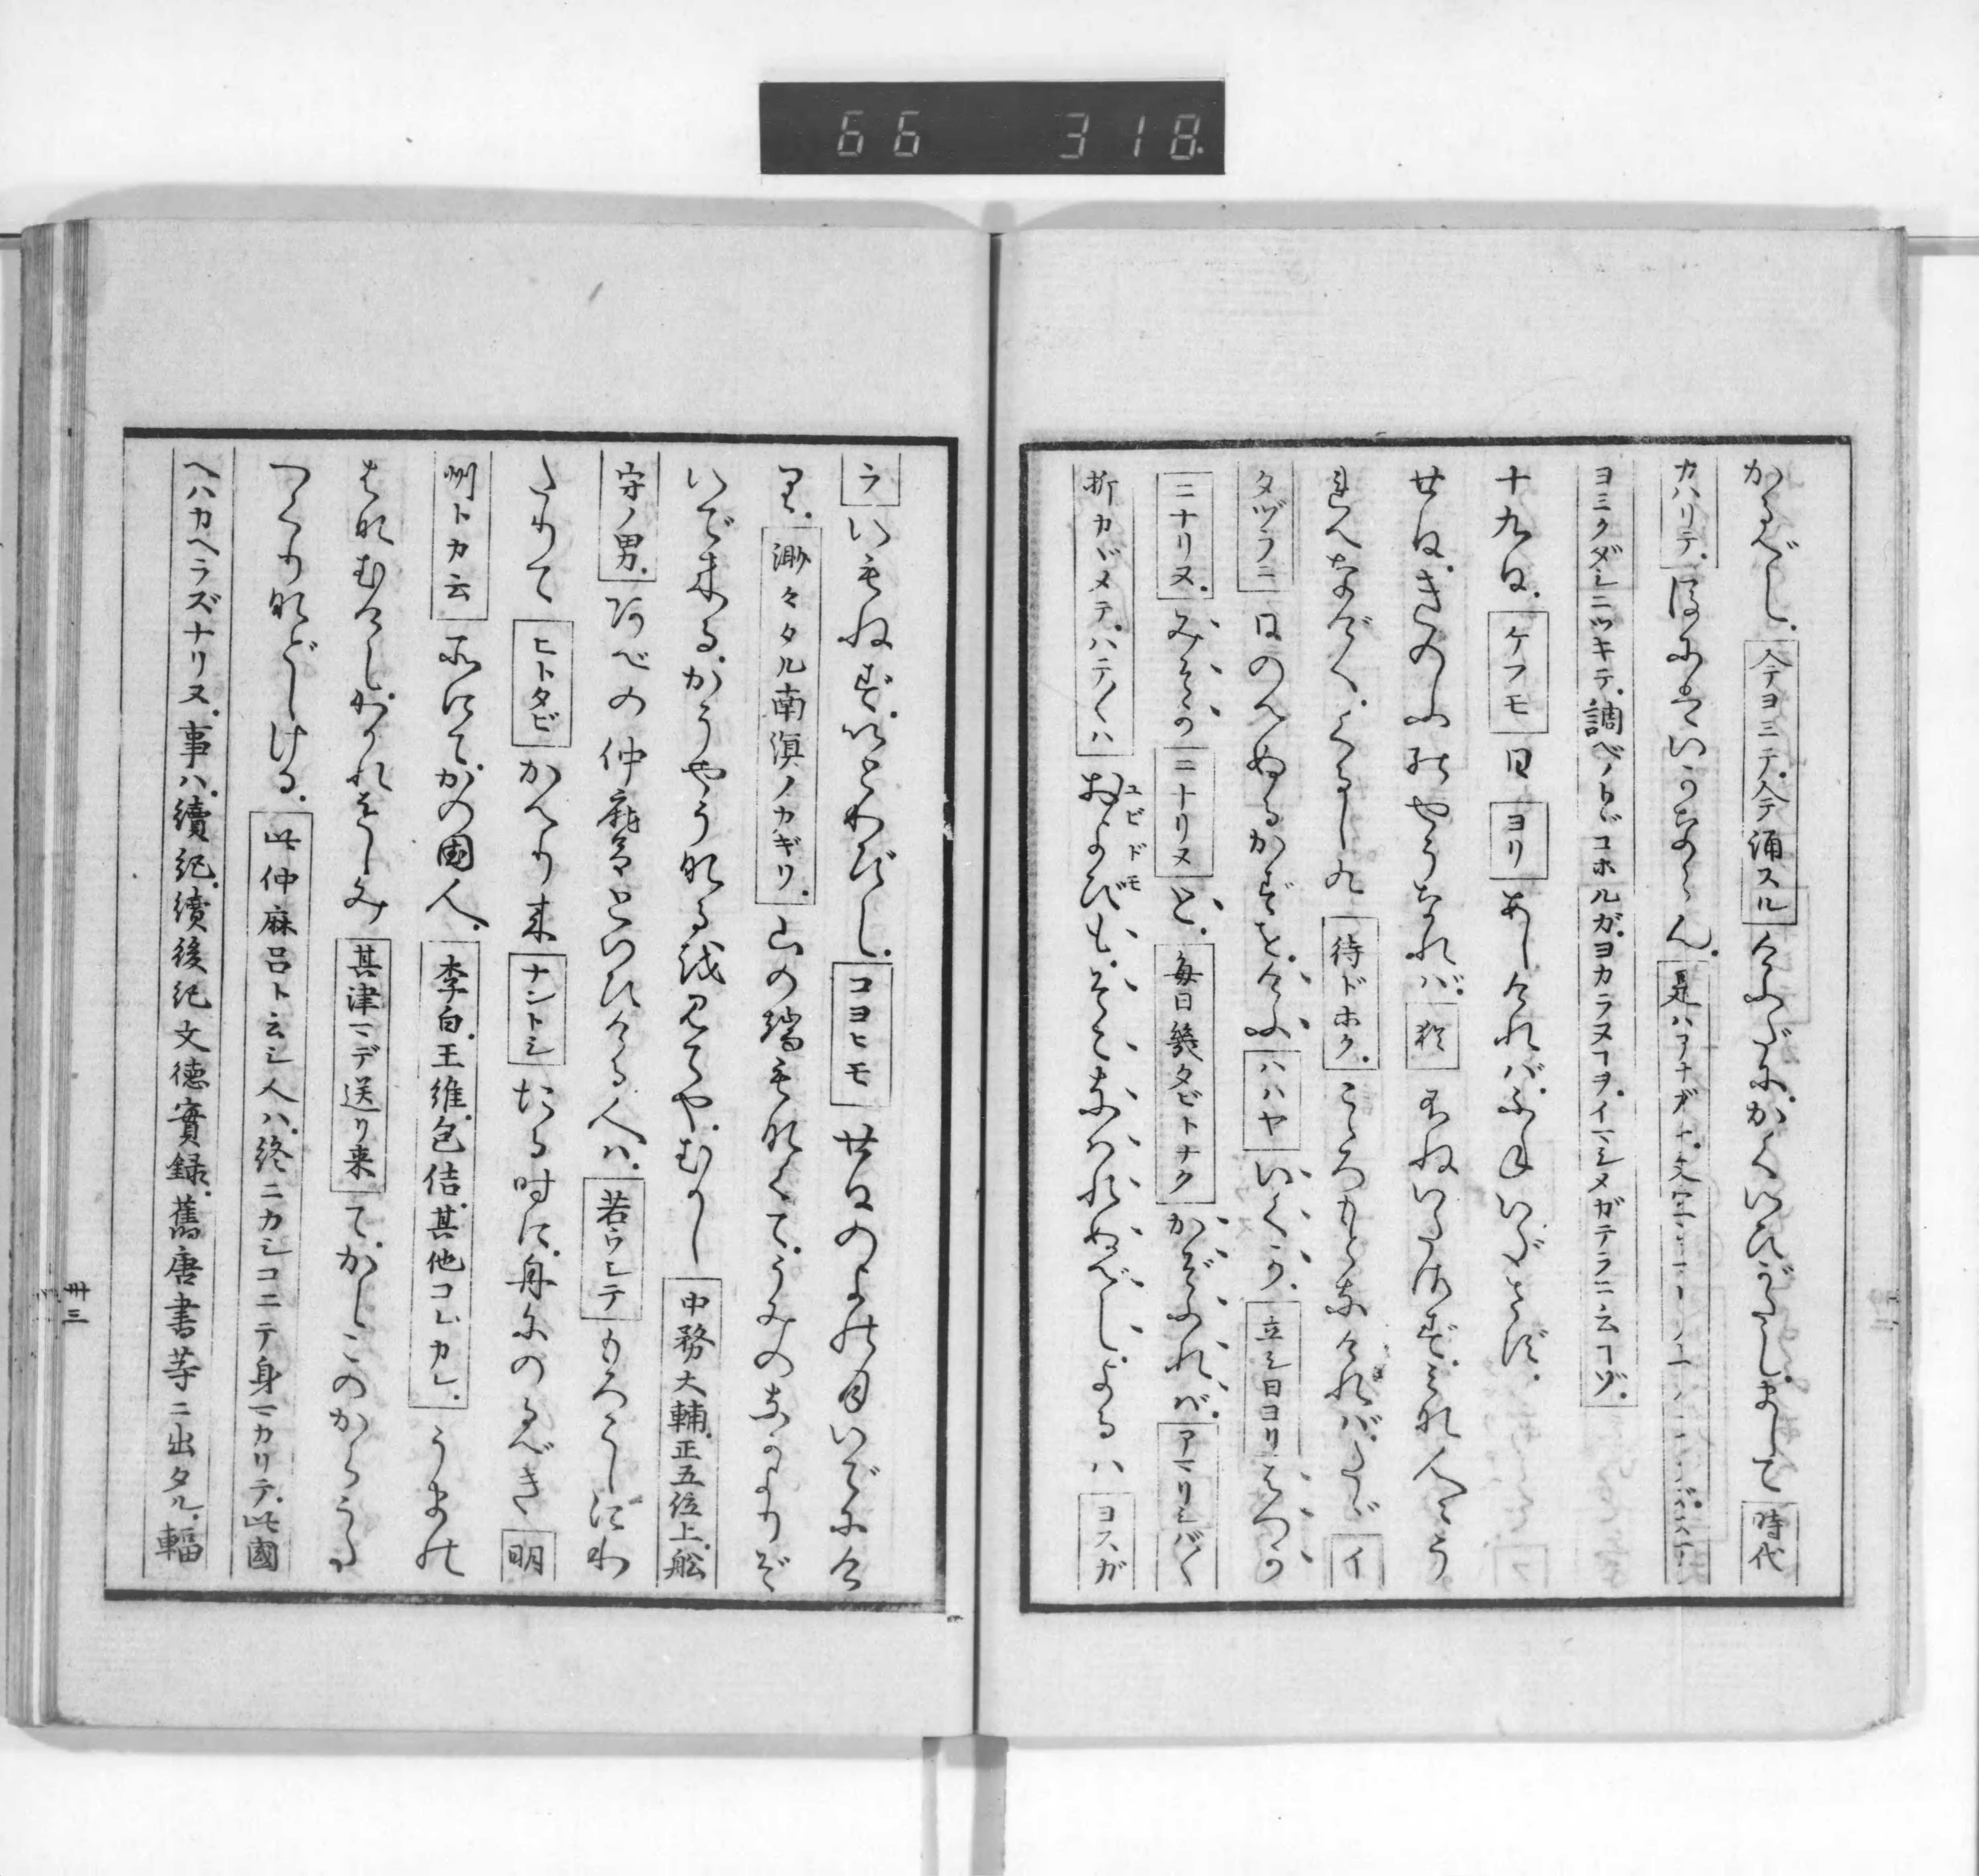 かるべし。今テヨミテ。今テ誦スルけふだにかくいひがたし。まして時代
カハリテ。後にはいかならん。是ハアナガチ。文字
ヨミクダシニツキテ。調ベノトヾコホルガ。ヨカラヌヿヲ。イマシメガテラニ云ヿゾ。
十九日。ケフモ日ヨリあしければ。ふねいださず。
廿日。きのふのやうなれバ。猶ふねいださず。みな人〳〵う
れへなげく。くるしく待ドホク。こゝろもとなければ。たゞイ
タヅラニ日のへぬるかずを。けふハハヤいくか。立シ日ヨリはつか
ニナリヌ。みそかニナリヌと。毎日幾タビトナクかぞふれバ。アマリシバ〳〵
折カヾメテ。ハテ〳〵ハおよびも。そこなはれぬべし。よるハヨスガ
ユビドモ
ラいもねず。いとわびし。コヨヒモ廿日のよの月いでにけ
り。渺々タル南溟ノカギリ。山の端もなくて。うみのなかよりぞ
いで来る。かうやうなるを見てや。むかし中務大輔。正五位上。舩
守ノ男。阿べの仲麻呂といひける人ハ。若ウシテもろこしにわ
たりてヒトタビかへり来ナントシたる時に。舟にのるべき明
州トカ云所にて。かの国人。李白。王維。包佶。其他コレカレ。うまの
はなむけし。わかれをしみ其津マデ送リ来て。かしこのからうた
つくりなどしける。此仲麻呂ト云シ人ハ。終ニカシコニテ身マカリテ。此國
ヘハカヘラズナリヌ。事ハ。續紀。續後紀文徳實録。舊唐書等ニ出タル。輻
卅三
66 318